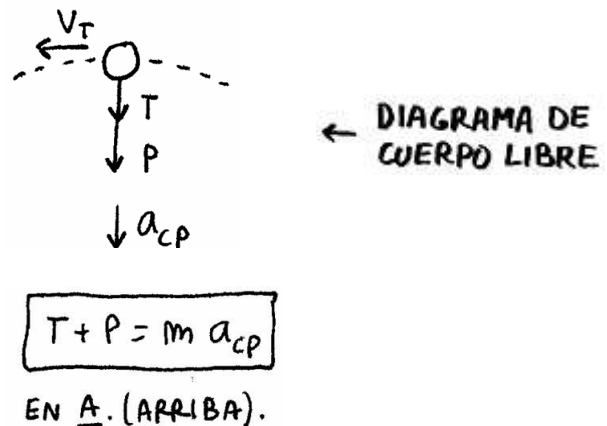 V_T
T
P
a_cp
← DIAGRAMA DE
CUERPO LIBRE
T + P = m a_cp
EN A. (ARRIBA).